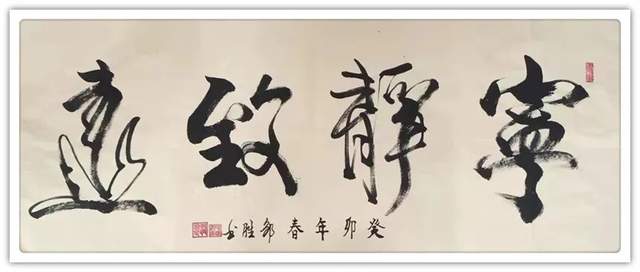 寧靜致遠
癸卯年春胜